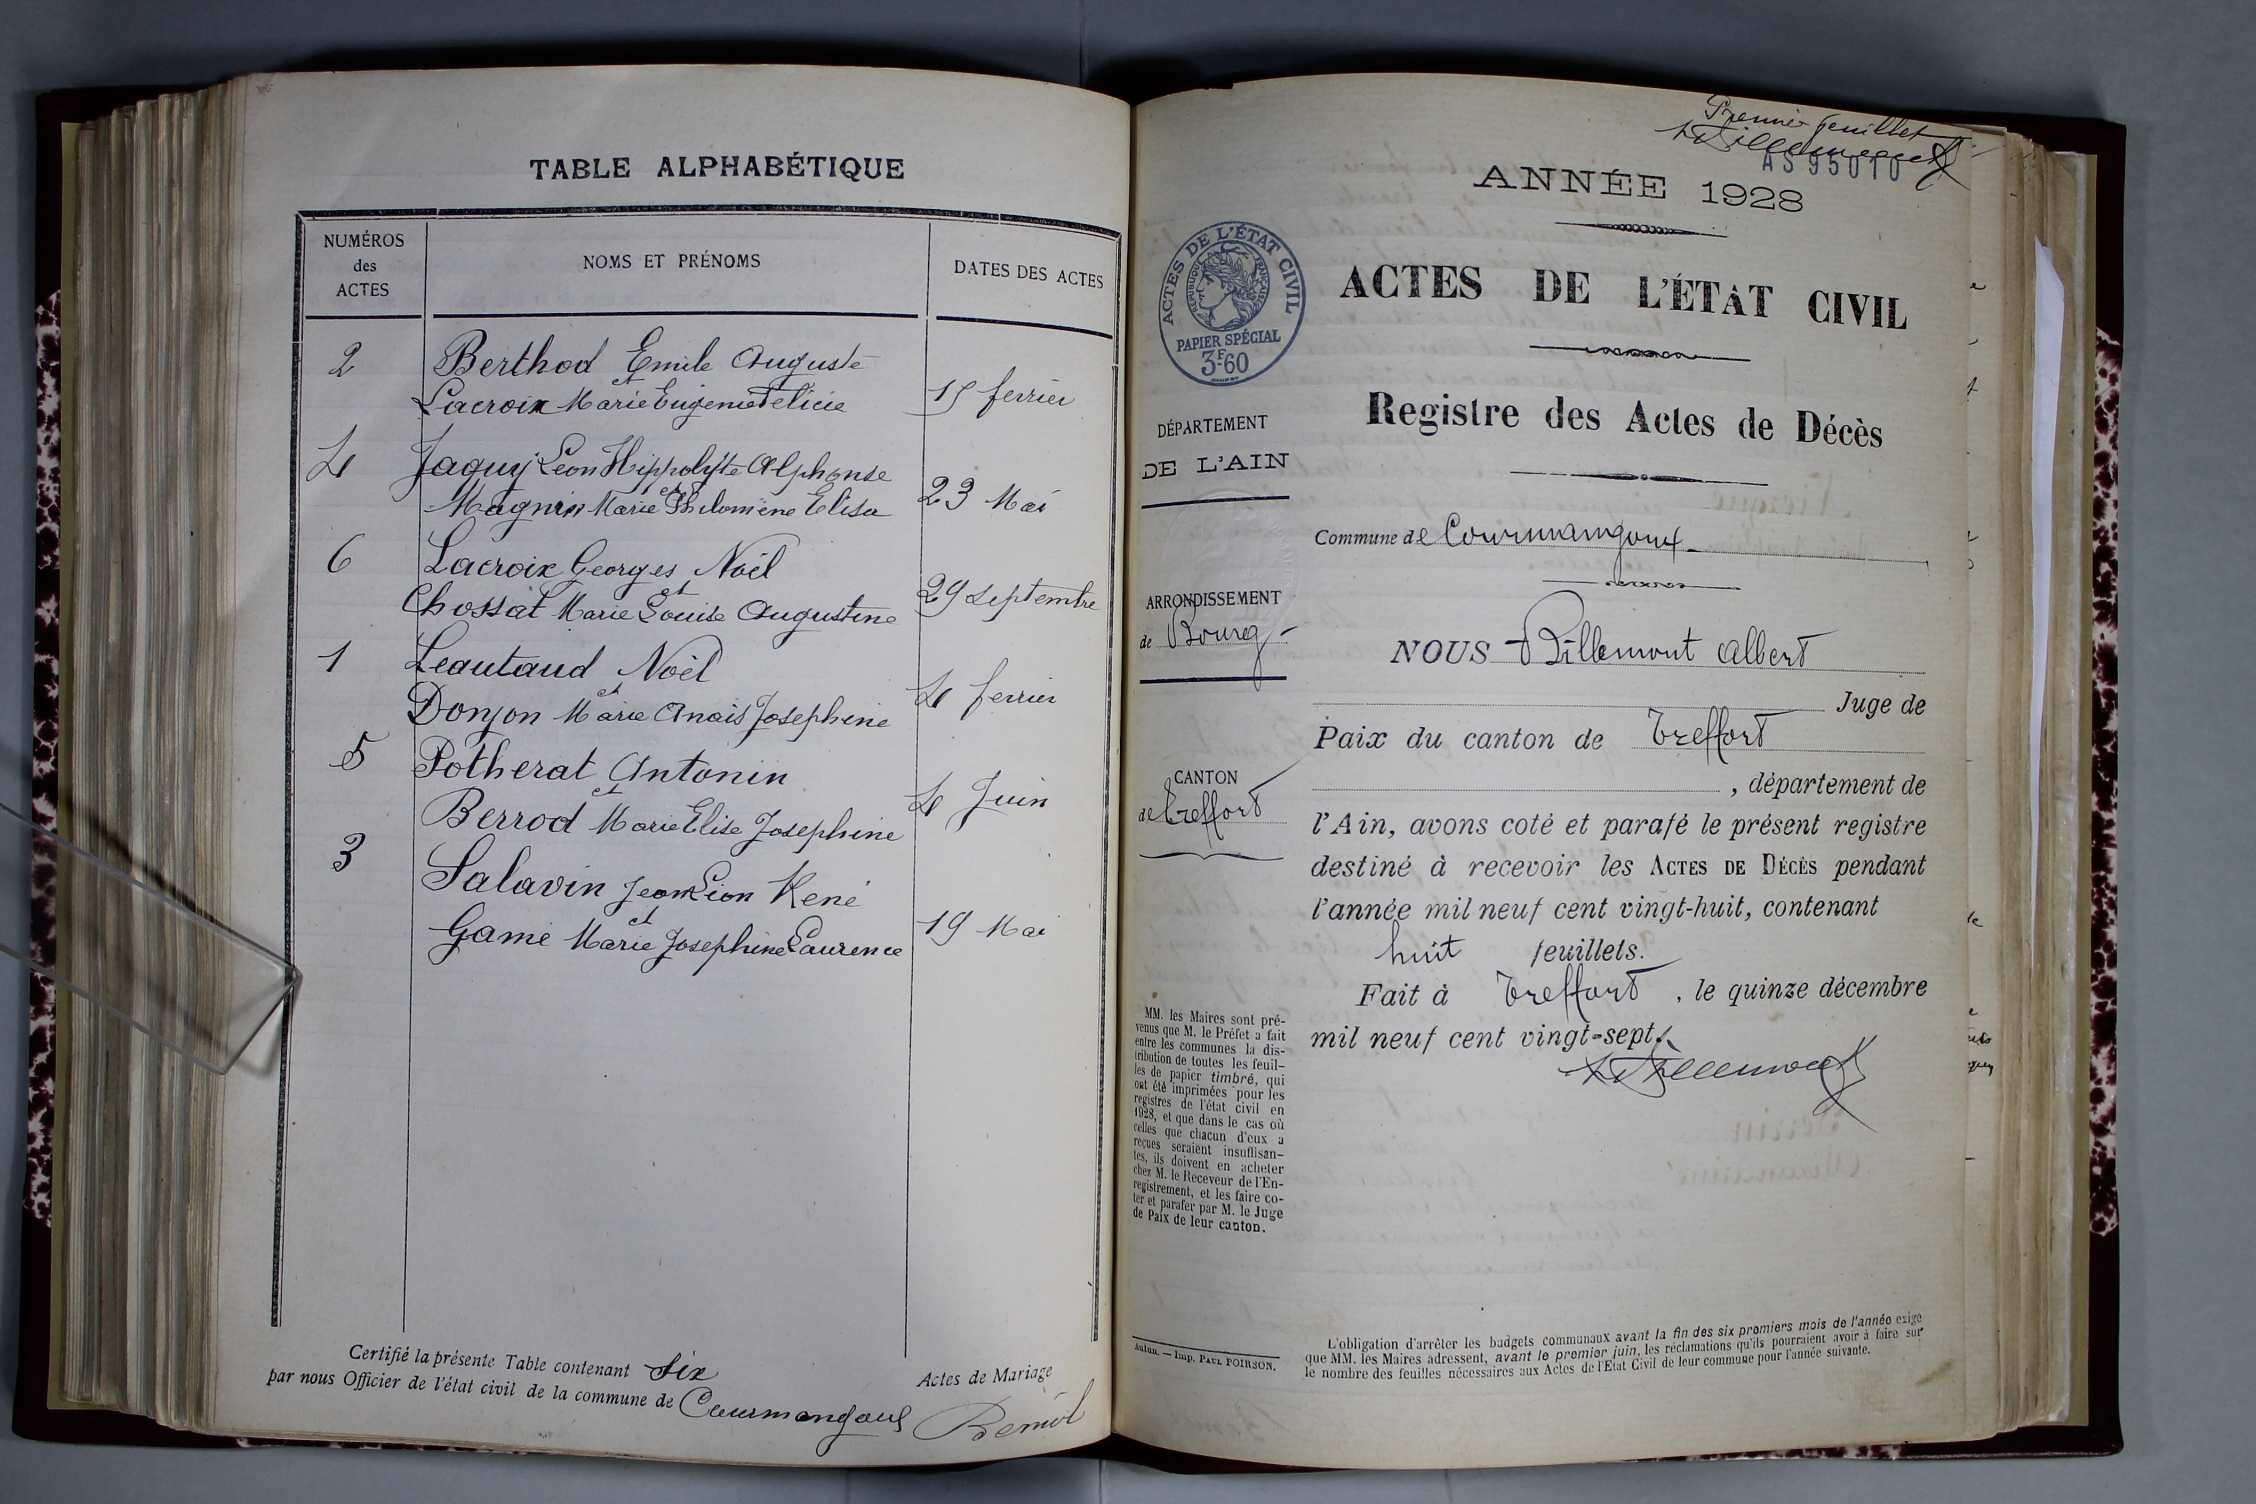 TABLE ALPHABÉTIQUE
NUMÉROS
des
ACTES
NOMS ET PRÉNOMS
DATES DES ACTES
2 Berthod Emile Auguste
et
Lacroix Marie Eugenie Felicie 15 fevrier
4 Jaquy Leon Hippolyte Alphonse
et
Magnin Marie Philomène Elisa 23 Mai
6 Lacroix Georges Noël
et
Chossat Marie Louise Augustine 29 septembre
1 Leautaud Noël
et
Donjon Marie Anais Josephine 4 fevrier
5 Potherat Antonin
et
Berrod Marie Elise Josephine 4 Juin
3 Salavin Jean Léon René
et
Game Marie Josephine Laurence 19 Mai
Certifié la présente Table contenant Six Actes de Mariage
par nous Officier de l'état civil de la commune de Courmangoux
Premier feuillet
AS 95010
ANNÉE 1928
ACTES DE L'ÉTAT CIVIL
RÉPUBLIQUE FRANÇAISE
PAPIER SPÉCIAL
3F60
ACTES DE L'ÉTAT CIVIL
Registre des Actes de Décès
DÉPARTEMENT
DE L'AIN
ARRONDISSEMENT
de Bourg
CANTON
de Treffort
MM. les Maires sont pré-
venus que M. le Préfet a fait
entre les communes la dis-
tribution de toutes les feuil-
les de papier timbré, qui
ont été imprimées pour les
registres de l'état civil en
1928, et que dans le cas où
celles que chacun d'eux a
reçues seraient insuffisan-
tes, ils doivent en acheter
chez M. le Receveur de l'En-
registrement, et les faire co-
ter et parafer par M. le Juge
de Paix de leur canton.
Autun. — Imp. PAUL POIRSON.
Commune de Courmangoux
NOUS Billemont Albert
Juge de
Paix du canton de Treffort
, département de
l'Ain, avons coté et parafé le présent registre
destiné à recevoir les ACTES DE DÉCÈS pendant
l'année mil neuf cent vingt-huit, contenant
huit feuillets.
Fait à Treffort, le quinze décembre
mil neuf cent vingt-sept.
L'obligation d'arrêter les budgets communaux avant la fin des six premiers mois de l'année exige
que MM. les Maires adressent, avant le premier juin, les réclamations qu'ils pourraient avoir à faire sur
le nombre des feuilles nécessaires aux Actes de l'Etat Civil de leur commune pour l'année suivante.